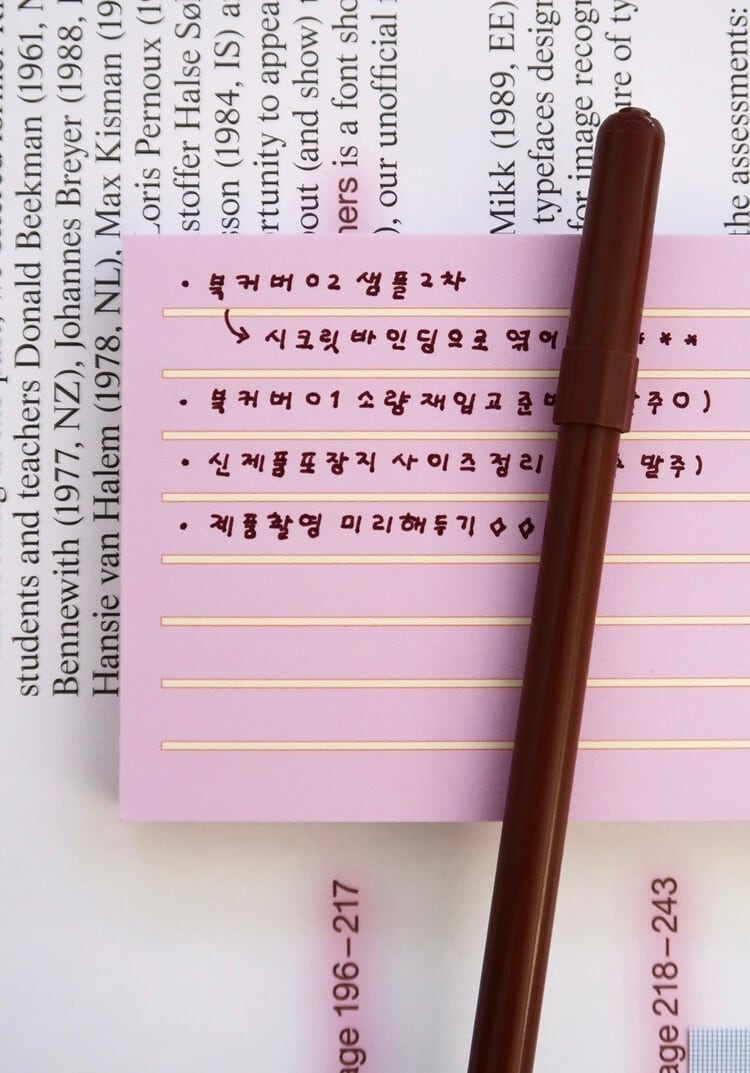 • 북커버 02 샘플 2차
시크릿 바인딩으로 엮어 * * *
• 북커버 01 소량 재입고 준 주 0)
• 신제품 포장지 사이즈 정리 말주)
• 제품촬영 미리해두기 ◇◇
students and teachers Donald Beekman (1961, N
Bennewith (1977, NZ), Johannes Breyer (1988,
Hansje van Halem (1978, NL), Max Kisman (19
Loris Pernoux (1
stoffer Halse Sø
sson (1984, IS) a
rtunity to appea
out (and show)
ners is a font sho
), our unofficial
Mikk (1989, EE)
typefaces design
for image recogn
ure of ty
the assessments:
age 196–217
age 218–243